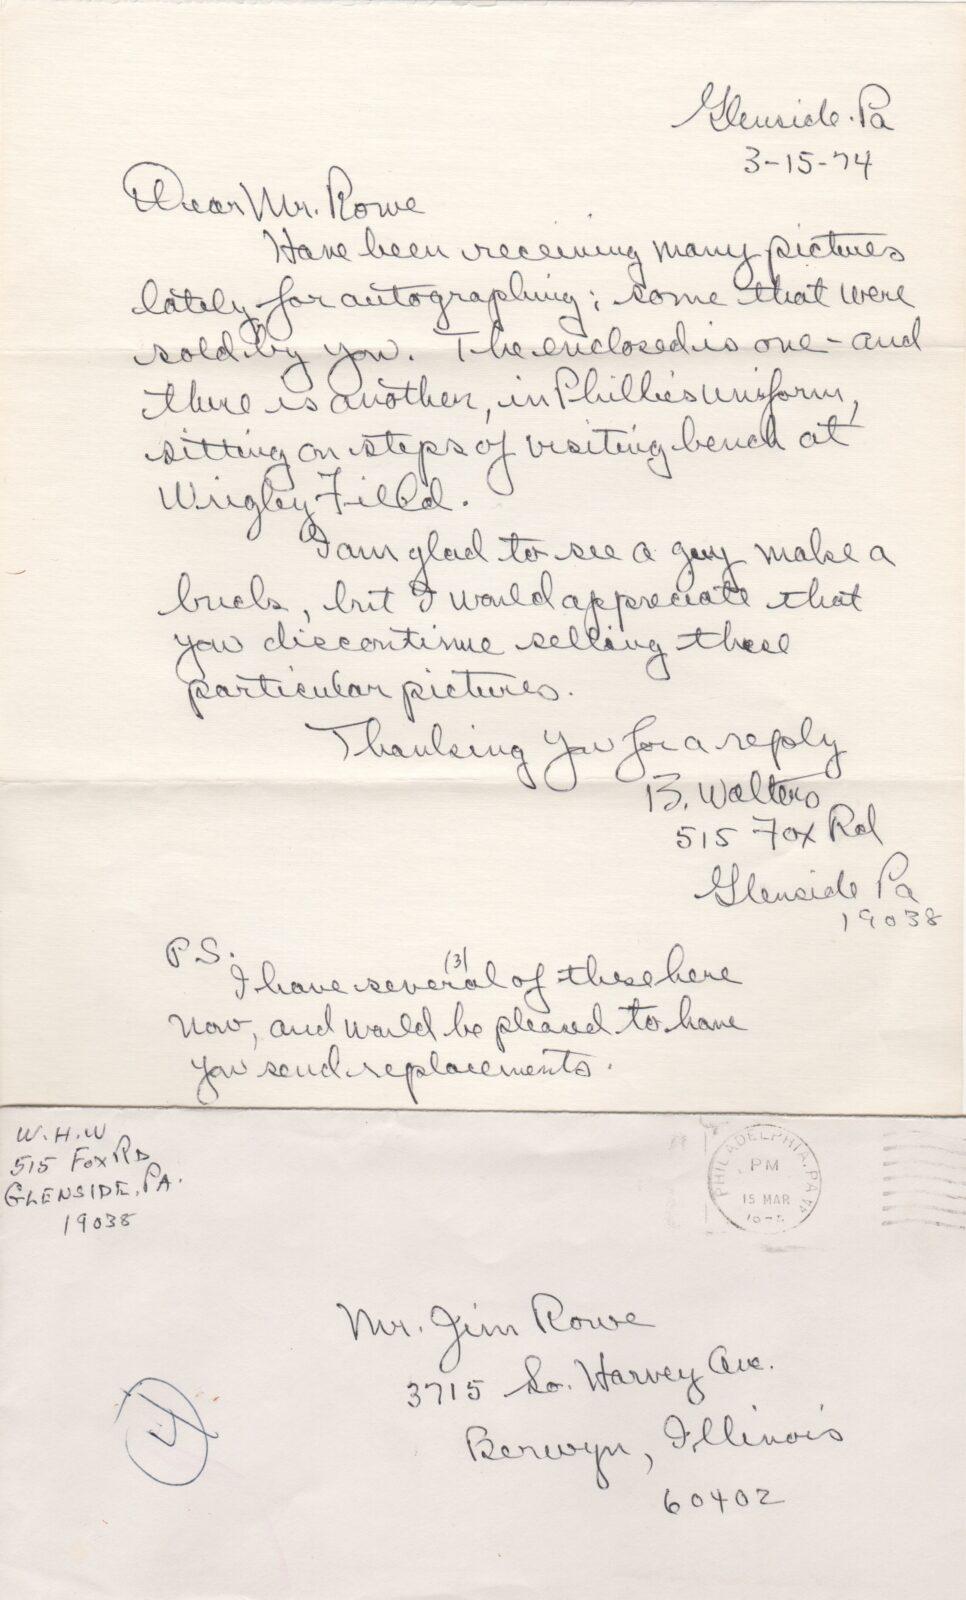 Glenside. Pa
3-15-74
Dear Mr. Rowe
Have been receiving many pictures
lately for autographing; some that were
sold by you. The enclosed is one - and
there is another, in Phillies uniform,
sitting on steps of visiting bench at
Wrigley Field.
I am glad to see a guy make a
buck, but I would appreciate that
you discontinue selling these
particular pictures.
Thanking you for a reply
B. Walters
515 Fox Rd
Glenside Pa
19038
P.S.
(3)
I have several of these here
now, and would be pleased to have
you send replacements.
W.H.W
515 Fox RD
GLENSIDE, PA.
19038
PHILADELPHIA, PA
PM
15 MAR
Mr. Jim Rowe
3715 So. Harvey Ave.
Berwyn, Illinois
60402